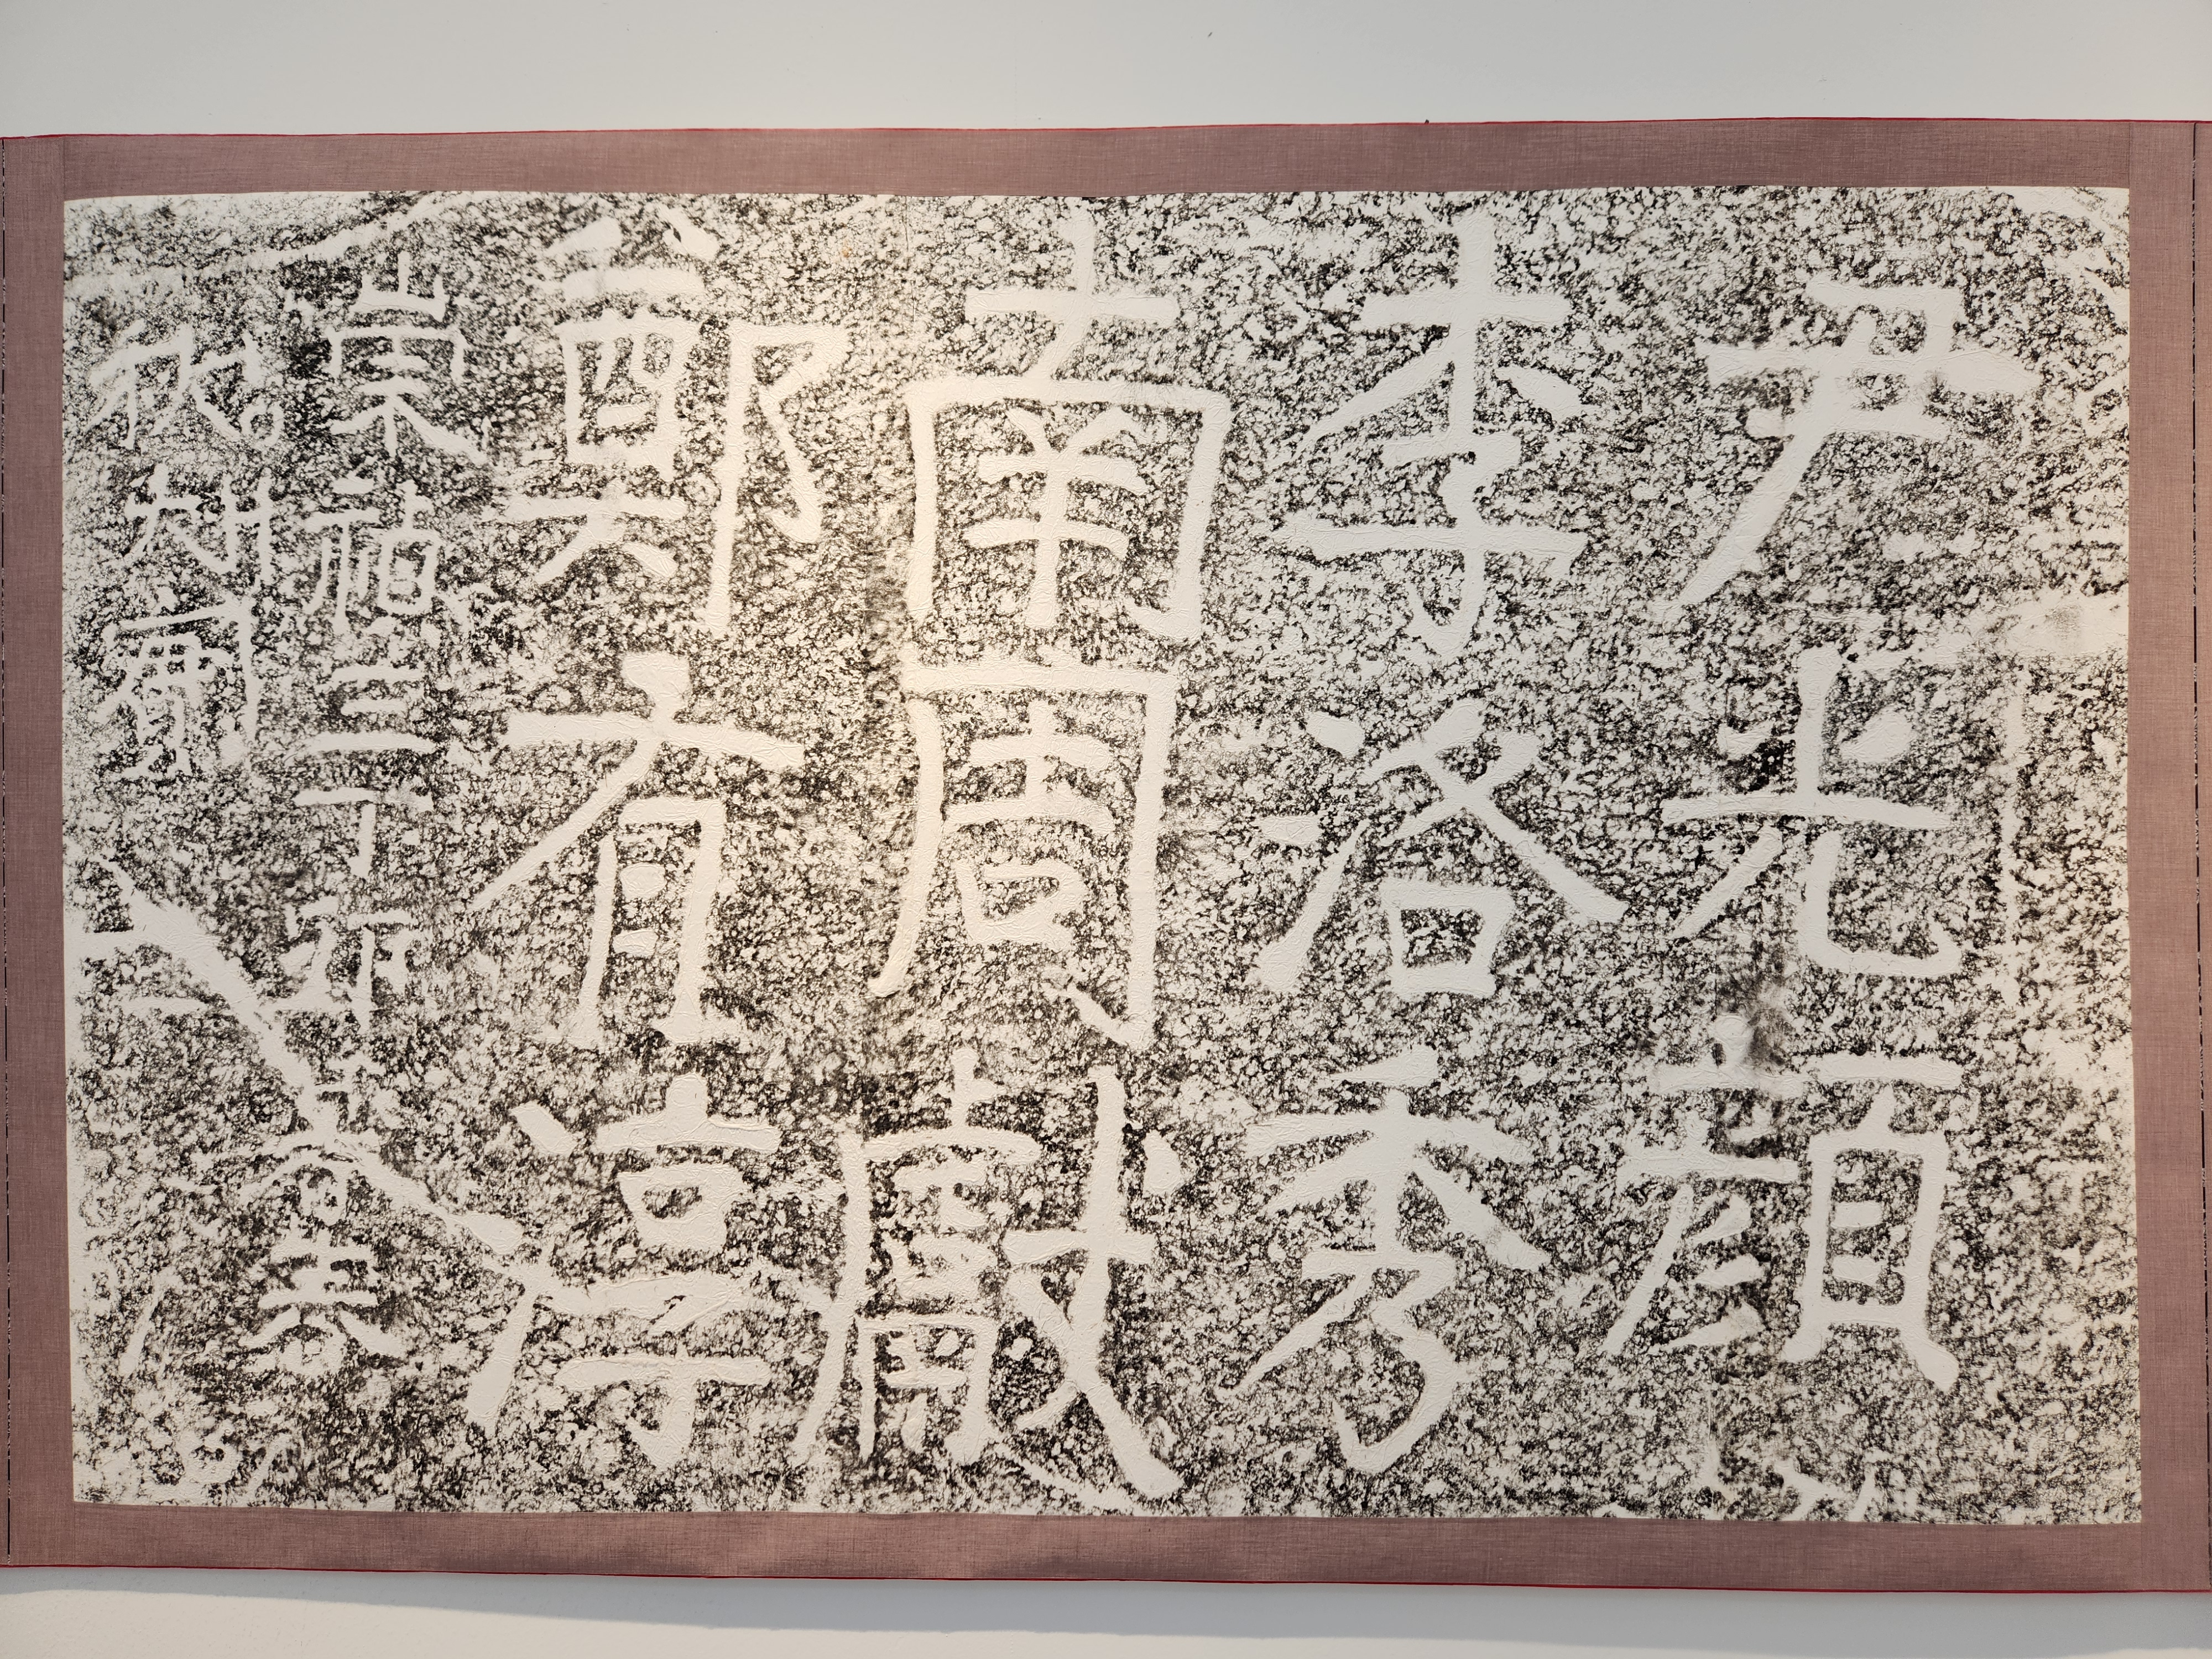 尹光顔
李洛秀
南周獻
鄭有淳
崇禎三丁卯
秋刻